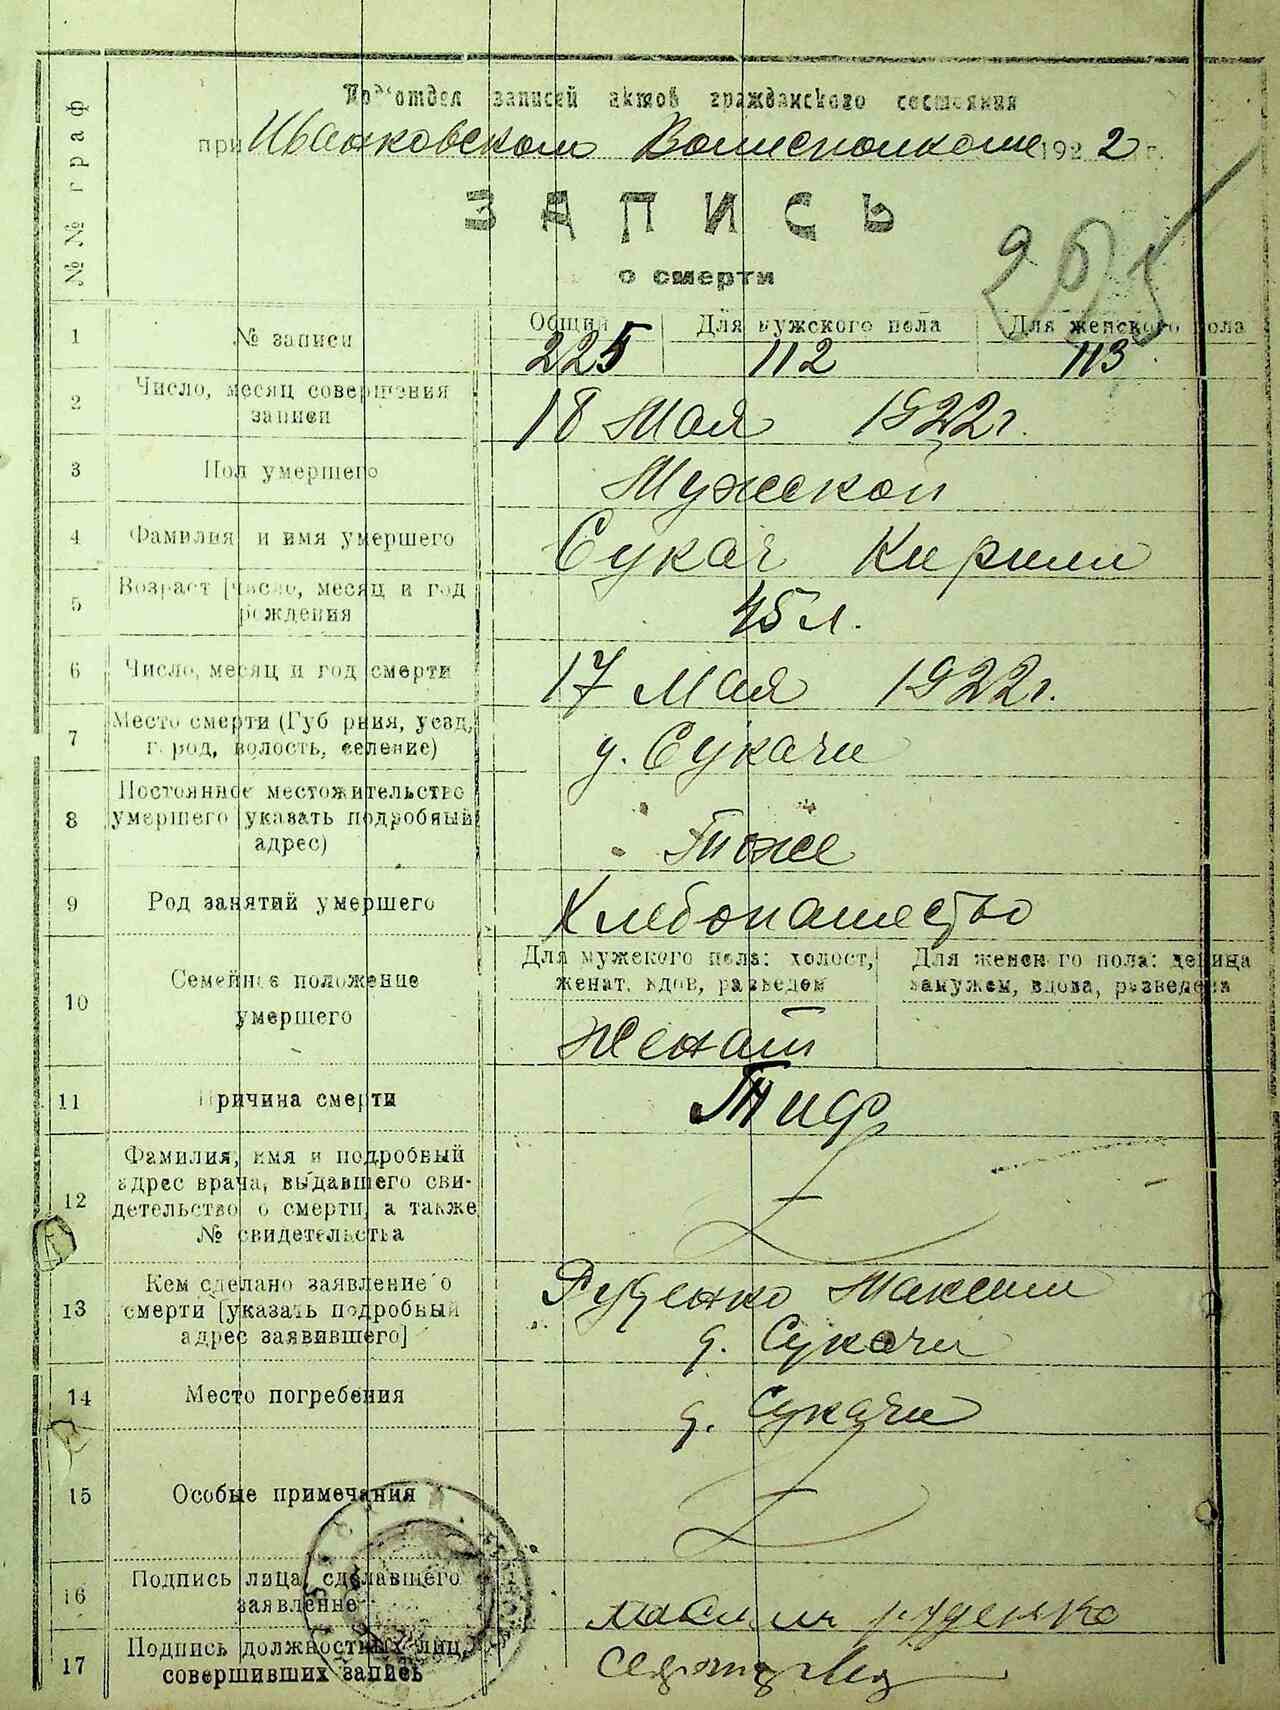 Под'отдел записей актов гражданского состояния
при Иванковском Волисполкоме 1922 г.
№№ граф
ЗАПИСЬ
о смерти
295
1 № записи Общий Для мужского пола Для женского пола
225 112 113
2 Число, месяц совершения
записи
18 Мая 1922 г.
3 Пол умершего Мужской
4 Фамилия и имя умершего Сукач Кирилл
5 Возраст [число, месяц и год
рождения
45 л.
6 Число, месяц и год смерти 17 Мая 1922 г.
7 Место смерти (Губерния, уезд,
город, волость, селение)
д. Сукачи
8 Постоянное местожительство
умершего [указать подробный
адрес)
Тоже
9 Род занятий умершего Хлебопашество
10 Семейное положение
умершего
Для мужского пола: холост,
женат, вдов, разведен
Для женского пола: девица
замужем, вдова, разведена
Женат
11 Причина смерти Тиф
12 Фамилия, имя и подробный
адрес врача, выдавшего сви-
детельство о смерти, а также
№ свидетельства
13 Кем сделано заявление о
смерти [указать подробный
адрес заявившего]
Руденко Максим
д. Сукачи
14 Место погребения д. Сукачи
15 Особые примечания
16 Подпись лица, сделавшего
заявление
руденко
17 Подпись должностных лиц,
совершивших запись